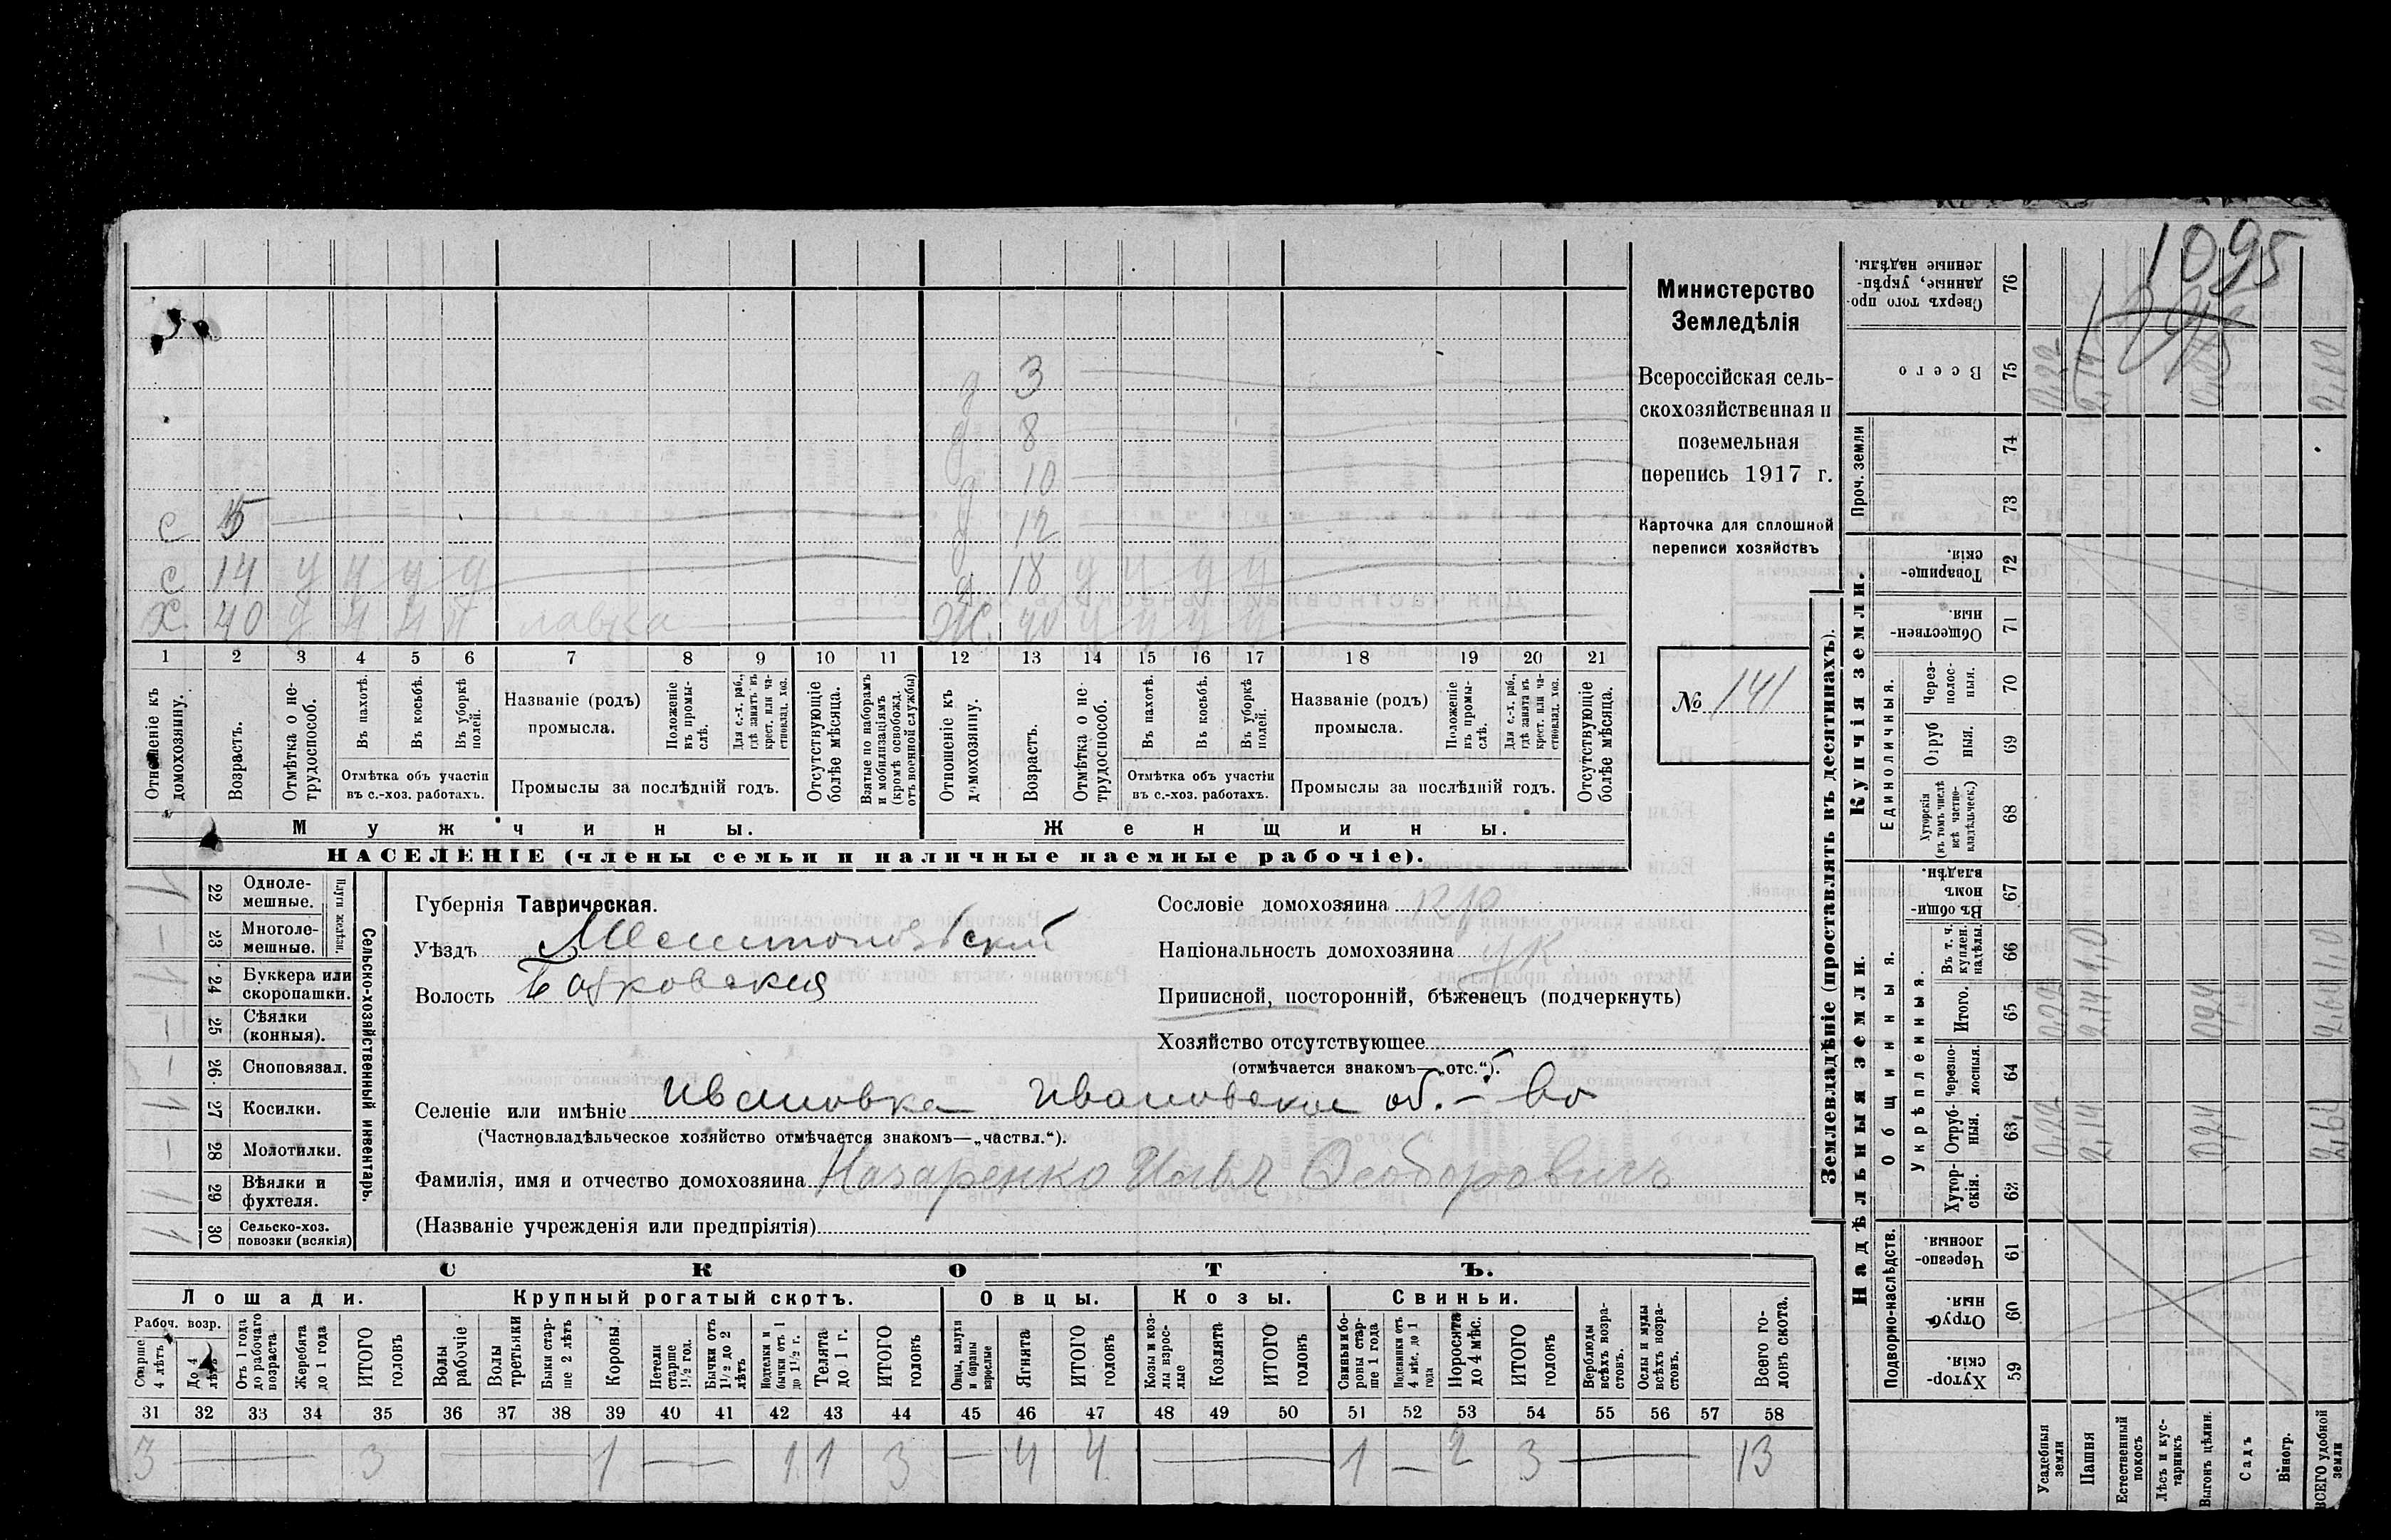 1095
Министерство
Земледѣлія
Всероссійская сель-
скохозяйственная и
поземельная
перепись 1917 г.
Карточка для сплошной
переписи хозяйствъ
№ 141
д 3
д 8
д 10
с 5 д 12
с 14 у у у у д 18 у у у у
х. 40 у у у у лавка ж. 40 у у у у
1 2 3 4 5 6 7 8 9 10 11 12 13 14 15 16 17 18 19 20 21
Отношеніе къ домохозяину.
Возрастъ.
Отмѣтка о не-трудоспособ.
Въ пахотѣ.
Въ косьбѣ.
Въ уборкѣ полей.
Отмѣтка объ участіи
въ с.-хоз. работахъ.
Названіе (родъ)
промысла.
Положеніе въ промы-слѣ.
Для с.-х. раб., гдѣ занятъ въ крест. или ча-стновлад. хоз.
Промыслы за послѣдній годъ.
Отсутствующіе болѣе мѣсяца.
Взятые по наборамъ и мобилизаціямъ (кромѣ освобожд. отъ военной службы)
Отношеніе къ домохозяину.
Возрастъ.
Отмѣтка о не-трудоспособ.
Въ пахотѣ.
Въ косьбѣ.
Въ уборкѣ полей.
Отмѣтка объ участіи
въ с.-хоз. работахъ.
Названіе (родъ)
промысла.
Положеніе въ промы-слѣ.
Для с.-х. раб., гдѣ занята въ крест. или ча-стновлад. хоз.
Промыслы за послѣдній годъ.
Отсутствующіе болѣе мѣсяца.
Мужчины.
Женщины.
НАСЕЛЕНІЕ (члены семьи и наличные наемные рабочіе).
Сельско-хозяйственный инвентарь.
1 22 Одноле-мешные.
— 23 Многоле-мешные.
1 24 Буккера или скоропашки.
— 25 Сѣялки (конныя).
— 26 Сноповязал.
1 27 Косилки.
— 28 Молотилки.
1 29 Вѣялки и фухтеля.
1 30 Сельско-хоз. повозки (всякія)
Губернія Таврическая.
Уѣздъ Мелитопольскій
Волость
Сословіе домохозяина кр
Національность домохозяина ук
Приписной, посторонній, бѣженецъ (подчеркнуть)
Хозяйство отсутствующее
(отмѣчается знакомъ—„отс.“).
Селеніе или имѣніе Ивановка Ивановское об.-во
(Частновладѣльческое хозяйство отмѣчается знакомъ—„частвл.“).
Фамилія, имя и отчество домохозяина Назаренко Илья Феодоровичъ
(Названіе учрежденія или предпріятія)
СКОТЪ.
Лошади. Крупный рогатый скотъ. Овцы. Козы. Свиньи.
Рабоч. возр.
Старше 4 лѣтъ
До 4 лѣтъ
Отъ 1 года до рабочаго возраста
Жеребята до 1 года
ИТОГО головъ
Волы рабочіе
Волы третьяки
Быки стар-ше 2 лѣтъ
Коровы
Нетели старше 1½ год.
Бычки отъ 1½ до 2 лѣтъ
Подтелки и бычки отъ 1 до 1½ г.
Телята до 1 г.
ИТОГО головъ
Овцы, валухи и бараны взрослые
Ягнята
ИТОГО головъ
Козы и коз-лы взрос-лые
Козлята
ИТОГО головъ
Свиньи и бо-ровы стар-ше 1 года
Подсвинки отъ 4 мѣс. до 1 года
Поросята до 4 мѣс.
ИТОГО головъ
Верблюды всѣхъ возра-стовъ.
Ослы и мулы всѣхъ возра-стовъ.
Всего го-ловъ скота.
31 32 33 34 35 36 37 38 39 40 41 42 43 44 45 46 47 48 49 50 51 52 53 54 55 56 57 58
3 — 3 — 1 — 1 1 3 — 4 4 — 1 — 2 3 — 13
Землевладѣніе (проставлять въ десятинахъ).
Купчія земли.
Надѣльныя земли.
Сверхъ того про-данные, укрѣп-ленные надѣлы. 76
Всего 75 0,22 2,14
Проч. земли 74
73
Товарище-скія. 72
Обществен-ныя. 71
Единоличныя.
Через-полос-ныя. 70
Отруб-ныя. 69
Хуторскія (въ томъ числѣ всѣ частно-владѣльчес.) 68
Общинныя.
Укрѣпленныя.
Въ общи-номъ владѣн. 67
Въ т. ч. куплен. надѣлы. 66 1,0 1,0
Итого. 65 0,22 2,14 0,24 2,64
Черезпо-лосныя. 64
Отруб-ныя. 63 0,22 2,14 0,24 2,64
Хутор-скія. 62
Подворно-наслѣдств.
Черезпо-лосныя. 61
Отруб-ныя. 60
Хутор-скія. 59
Усадебныя земли
Пашня
Естественный покосъ
Лѣсъ и кус-тарникъ
Выгонъ цѣлин.
Садъ
Виногр.
ВСЕГО удобной земли